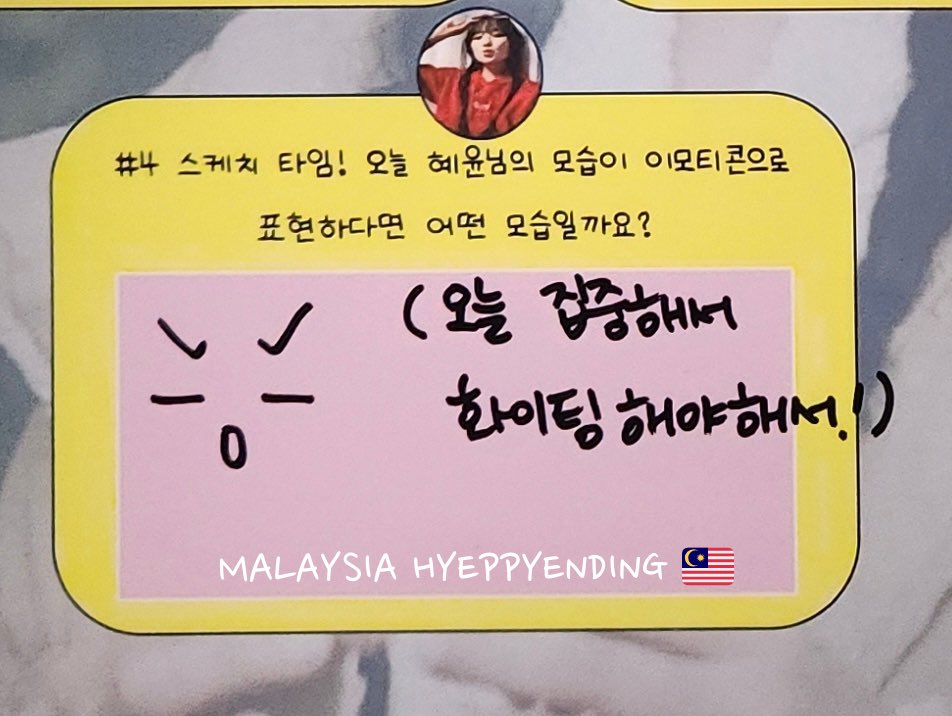 #4 스케치 타임! 오늘 혜윤님의 모습이 이모티콘으로
표현하다면 어떤 모습일까요?
(오늘 집중해서
화이팅 해야해서!)
MALAYSIA HYEPPYENDING 🇲🇾